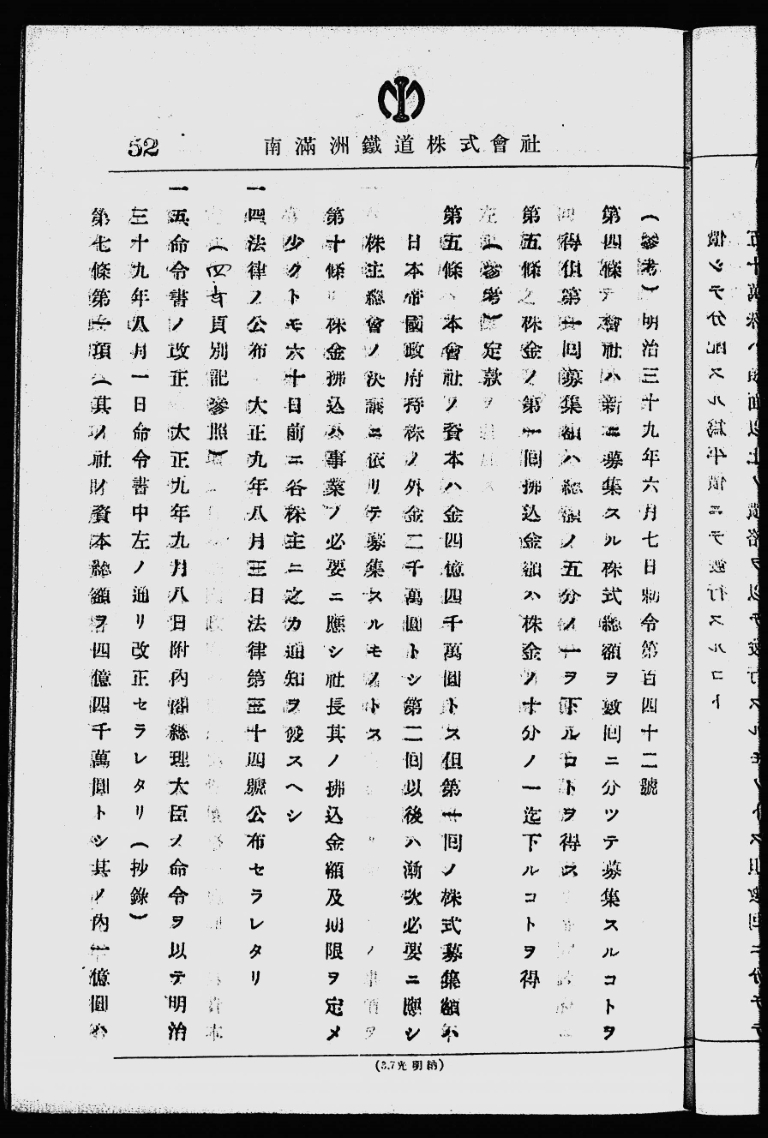 52
南滿洲鐵道株式會社
(參考)明治三十九年六月七日勅令第百四十二號
第四條 會社ハ新ニ募集スル株式總額ヲ數回ニ分ツテ募集スルコトヲ
得但第一回募集額ハ總額ノ五分ノ一ヲ下ルコトヲ得ス
第五條 株金ノ第一回拂込金額ハ株金ノ十分ノ一迄下ルコトヲ得
(參考)定款
第五條 本會社ノ資本ハ金四億四千萬圓トス但第一回ノ株式募集額ハ
日本帝國政府持株ノ外金二千萬圓トシ第二回以後ハ漸次必要ニ應シ
株主總會ノ決議ニ依リテ募集スルモノトス
第十條 株金拂込ハ事業ノ必要ニ應シ社長其ノ拂込金額及期限ヲ定メ
少クトモ六十日前ニ各株主ニ之カ通知ヲ發スヘシ
一四 法律ノ公布 大正九年八月三日法律第三十四號公布セラレタリ
頁別記參照)
一五 命令書ノ改正 大正九年九月八日附內閣總理大臣ノ命令ヲ以テ明治
三十九年八月一日命令書中左ノ通リ改正セラレタリ(抄錄)
第七條第一項(其ノ社財資本總額ヲ四億四千萬圓トシ其ノ內一億圓ハ
(3.7光明納)
債シテ分配スル爲平價ニテ發行スルコト